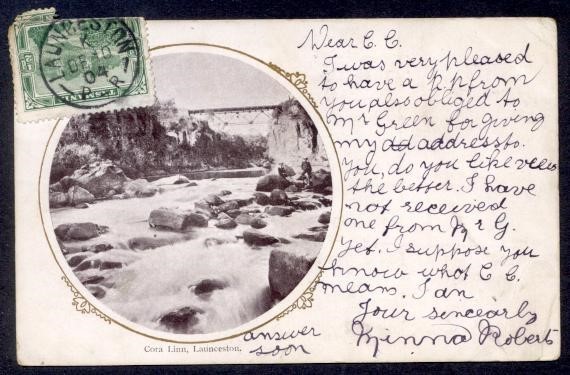 LAUNCESTON
DE
04
Dear C. C.
I was very pleased
to have a p.p from
you also obliged to
Mr Green for giving
my add address to.
you, do you like views
the better. I have
not received
one from Mr G.
yet. I suppose you
know what C C.
means. I am
Your sincearly
Minna Roberts
answer
soon
Cora Linn, Launceston.